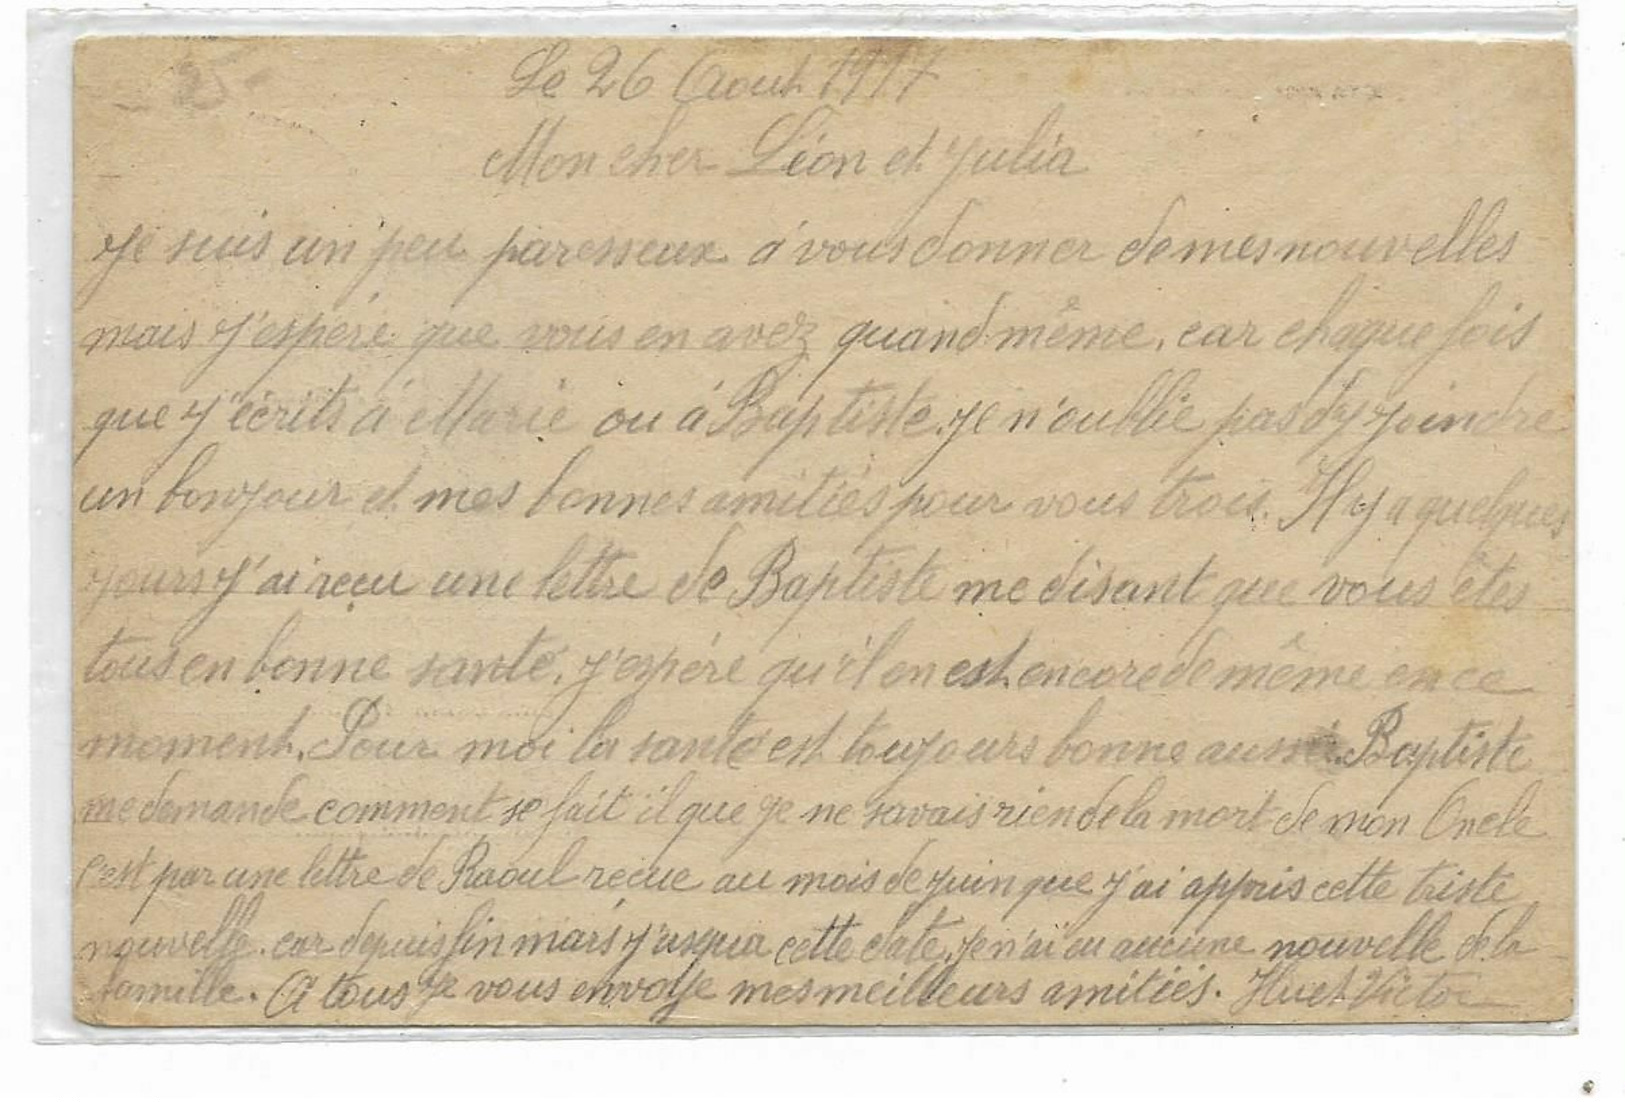 Le 26 Aout 1917
Mon cher Léon et Julia
Je suis un peu paresseux á vous donner de mes nouvelles
mais j'espére que vous en avez quand même, car chaque fois
que j'écrits á Marie ou á Baptiste, je n'oublie pas d'y joindre
un bonjour et mes bonnes amitiés pour vous trois. Il y a quelques
jours j'ai reçu une lettre de Baptiste me disant que vous êtes
tous en bonne santé, j'espére qu'il en est encore de même en ce
moment. Pour moi la santé est toujours bonne aussi. Baptiste
me demande comment se fait il que je ne savais rien de la mort de mon Oncle
c'est par une lettre de Raoul recue au mois de juin que j'ai appris cette triste
nouvelle. car depuis fin mars jusqua cette date, je n'ai eu aucune nouvelle de la
famille. A tous je vous envoye mes meilleurs amitiés. Huet Victor